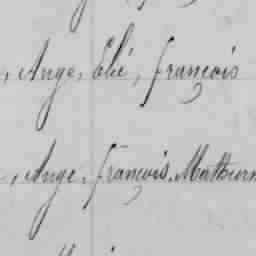 , Ange, Elié, françois
, Ange, françois, Mathurin